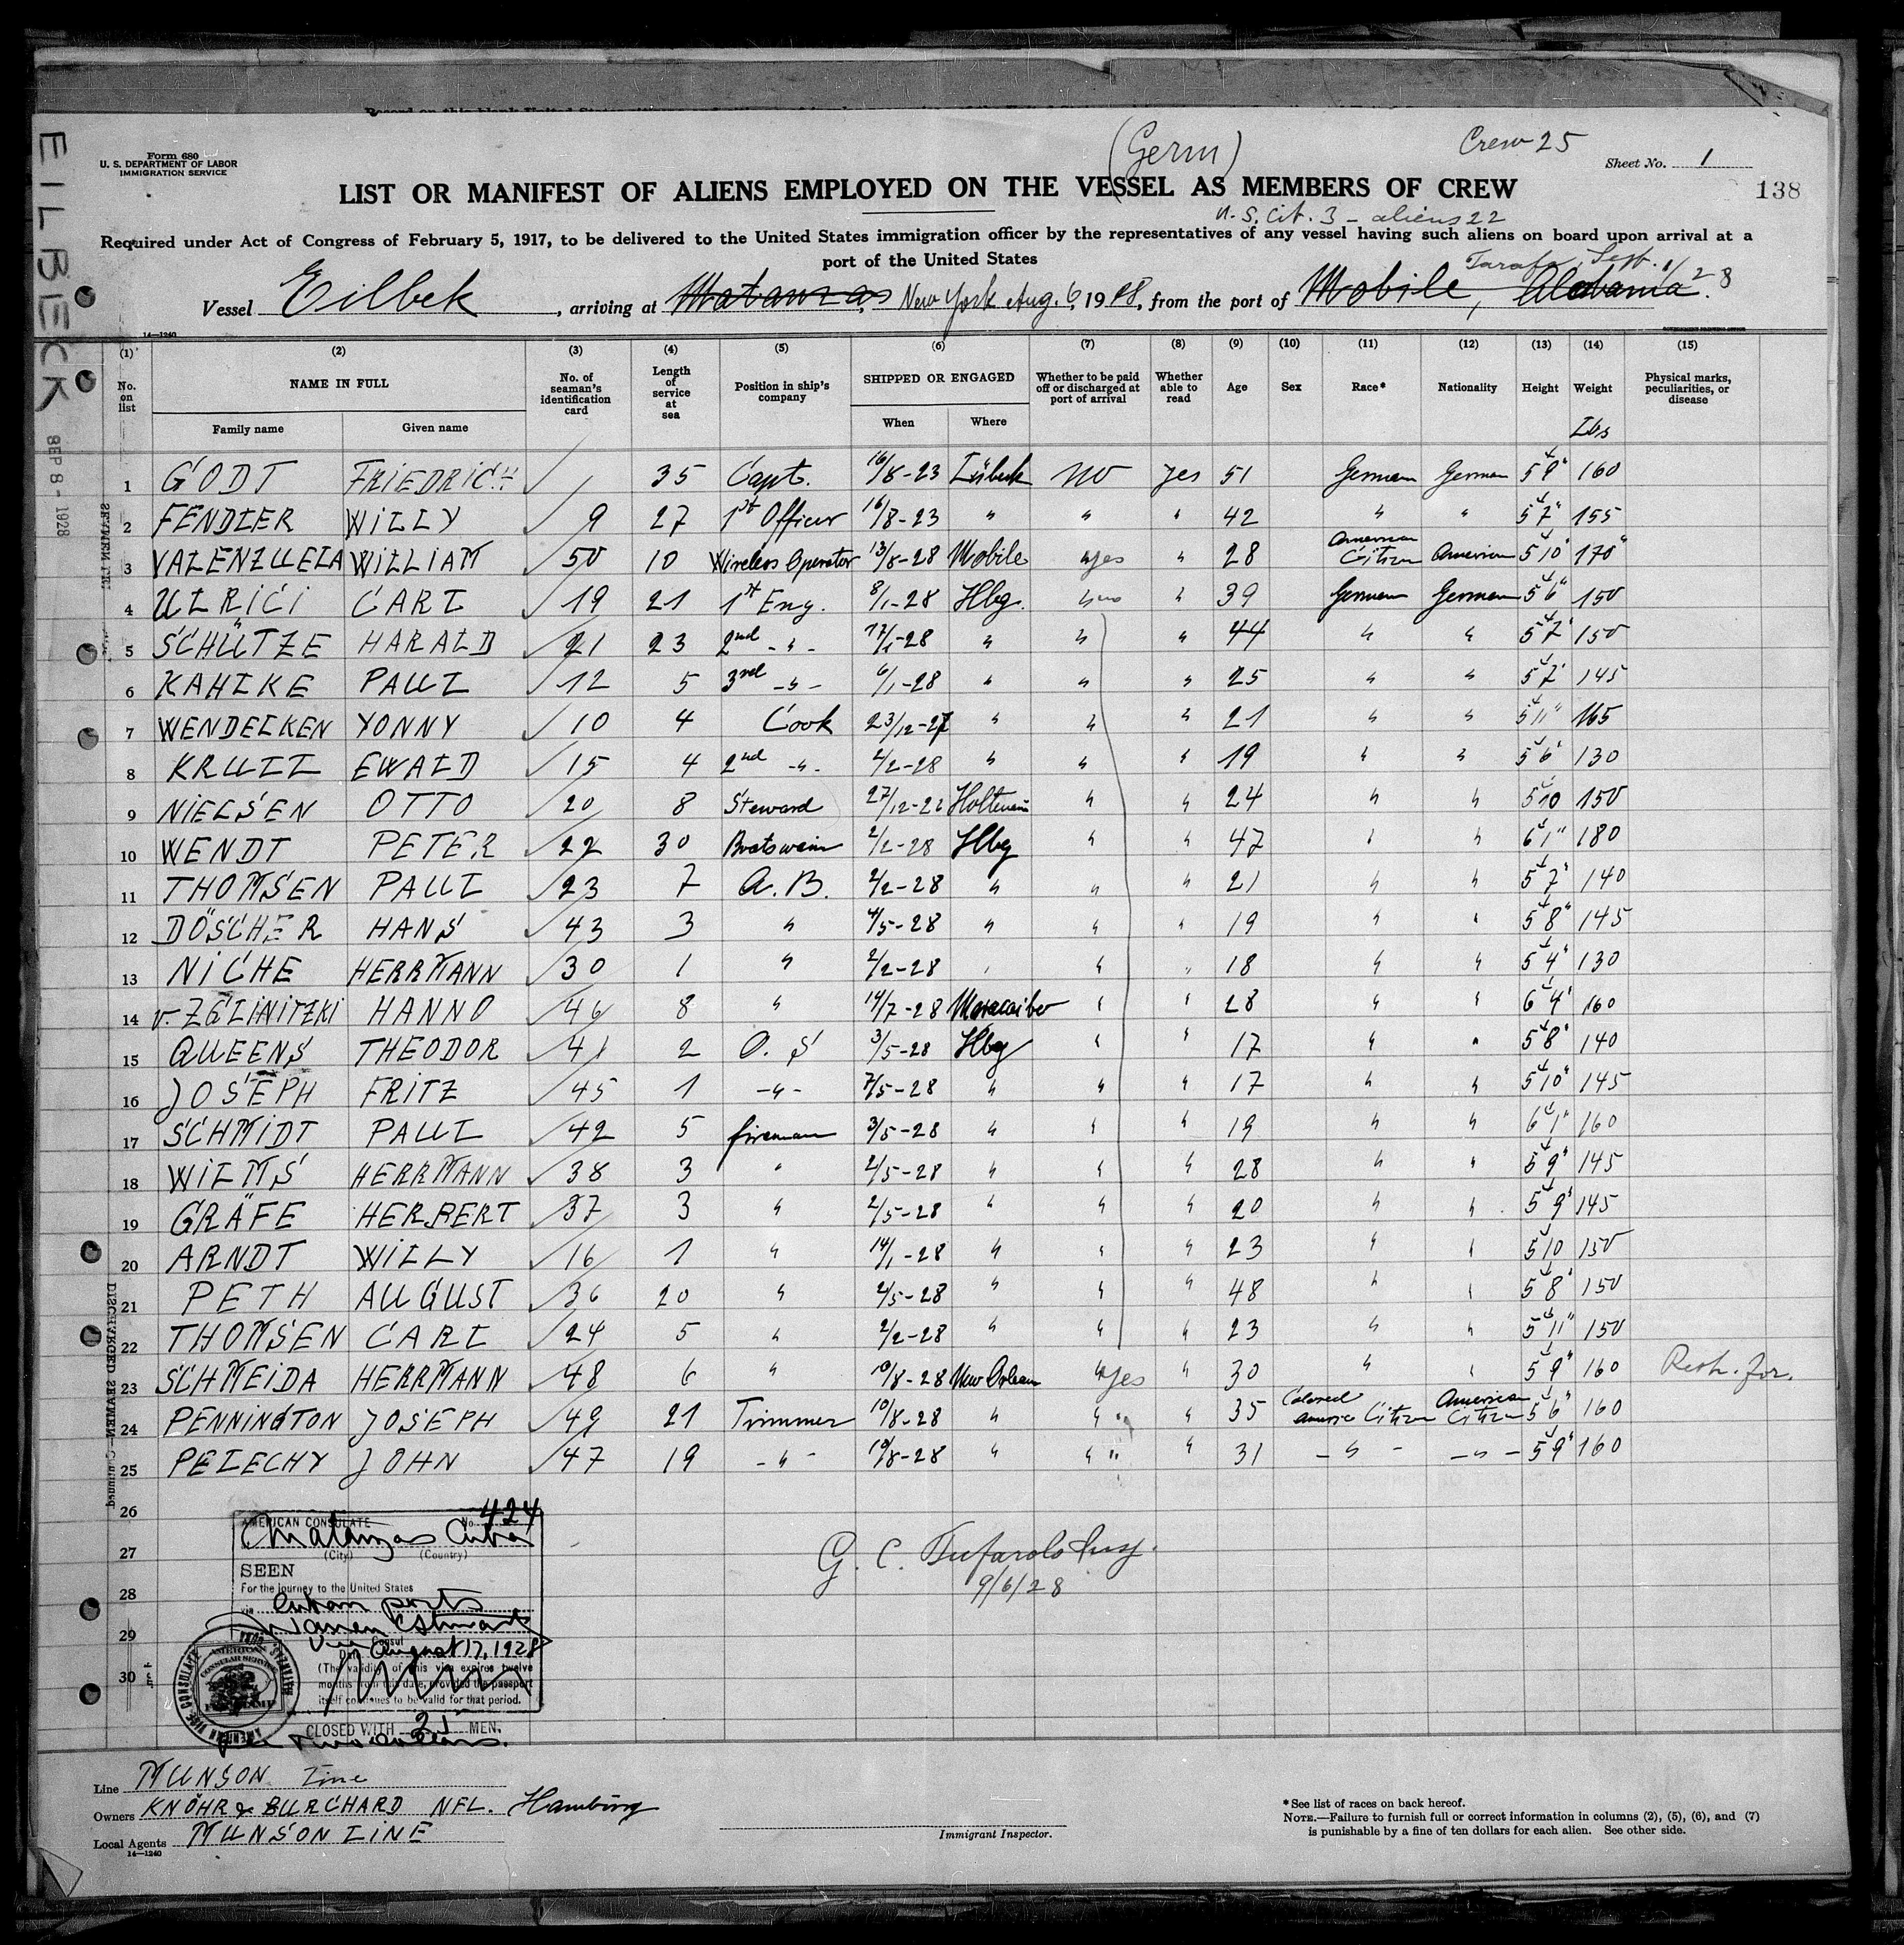 Form 680
U. S. DEPARTMENT OF LABOR
IMMIGRATION SERVICE
(Germ)
Crew 25
Sheet No. 1
LIST OR MANIFEST OF ALIENS EMPLOYED ON THE VESSEL AS MEMBERS OF CREW
138
U. S. Cit. 3 - aliens 22
Required under Act of Congress of February 5, 1917, to be delivered to the United States immigration officer by the representatives of any vessel having such aliens on board upon arrival at a
port of the United States
Tarafa, Sept. 1/28
Vessel Eilbek, arriving at Matanzas, New York Aug. 6, 1928, from the port of Mobile, Alabama.
14—1240
EILBECK
SEP 8 - 1928
(1) (2) (3) (4) (5) (6) (7) (8) (9) (10) (11) (12) (13) (14) (15)
No. on list NAME IN FULL No. of seaman's identification card Length of service at sea Position in ship's company SHIPPED OR ENGAGED Whether to be paid off or discharged at port of arrival Whether able to read Age Sex Race* Nationality Height Weight Physical marks, peculiarities, or disease
Family name Given name When Where Lbs
1 GODT FRIEDRICH ✓ 35 Capt. 16/8-23 Lübeck no yes 51 German German 5 9" 160
2 FENDLER WILLY ✓ 9 27 1st Officer 16/8-23 " " " 42 " " 5 7" 155
3 VALENZUELA WILLIAM ✓ 50 10 Wireless Operator 13/8-28 Mobile yes " 28 American Citizen American 5 10" 170"
4 ULRICI CARL ✓ 19 21 1st Eng. 8/1-28 Hbg. " no " 39 German German 5 6" 150
5 SCHÜTZE HARALD ✓ 21 23 2nd -"- 17/1-28 " " " 44 " " 5 7" 150
6 KAHLKE PAUL ✓ 12 5 3rd -"- 6/1-28 " " " 25 " " 5 7" 145
7 WENDELKEN YONNY ✓ 10 4 Cook 23/12-27 " " " 21 " " 5 11" 165
8 KRULL EWALD ✓ 15 4 2nd -"- 2/2-28 " " " 19 " " 5 6" 130
9 NIELSEN OTTO ✓ 20 8 Steward 27/12-22 Holtenau " " 24 " " 5 10 150
10 WENDT PETER ✓ 22 30 Boatswain 2/2-28 Hbg " " 47 " " 6 1" 180
11 THOMSEN PAUL ✓ 23 7 A. B. 2/2-28 " " " 21 " " 5 7" 140
12 DÖSCHER HANS ✓ 43 3 " 4/5-28 " " " 19 " " 5 8" 145
13 NICHE HERRMANN ✓ 30 1 " 2/2-28 " " " 18 " " 5 4" 130
14 v. ZGLINITZKI HANNO ✓ 46 8 " 14/7-28 Maracaibo " " 28 " " 6 4" 160
15 QUEENS THEODOR ✓ 41 2 O. S 3/5-28 Hbg " " 17 " " 5 8" 140
16 JOSEPH FRITZ ✓ 45 1 -"- 7/5-28 " " " 17 " " 5 10" 145
17 SCHMIDT PAUL ✓ 42 5 fireman 3/5-28 " " " 19 " " 6 1" 160
18 WILMS HERRMANN ✓ 38 3 " 2/5-28 " " " 28 " " 5 9" 145
19 GRÄFE HERBERT ✓ 37 3 " 2/5-28 " " " 20 " " 5 9" 145
20 ARNDT WILLY ✓ 16 1 " 14/1-28 " " " 23 " " 5 10 150
21 PETH AUGUST ✓ 36 20 " 2/5-28 " " " 48 " " 5 8" 150
22 THOMSEN CARL ✓ 24 5 " 2/2-28 " " " 23 " " 5 11" 150
23 SCHMEIDA HERRMANN ✓ 48 6 " 10/8-28 New Orleans " yes " 30 " " 5 9" 160
24 PENNINGTON JOSEPH ✓ 49 21 Trimmer 10/8-28 " " " " 35 Colored Americ Citizen American Citizen 5 6" 160
25 PELECHY JOHN ✓ 47 19 -"- 10/8-28 " " " " 31 -"- -"- 5 9" 160
26
27
28
29
30
DISCHARGED SEAMEN—Continued
AMERICAN CONSULATE No. 424
Matanzas Cuba
(City) (Country)
SEEN
For the journey to the United States
via Cuban ports
Vice Consul
Date August 17, 1928
(The validity of this visa expires twelve
months from this date, provided the passport
itself continues to be valid for that period.
CLOSED WITH 25 MEN.
AMERICAN VICE CONSULATE
AMERICAN CONSULAR SERVICE
G. C. Tufarolo Insp.
9/6/28
Line MUNSON Line
Owners KNÖHR & BURCHARD NFL. Hamburg
Local Agents MUNSON LINE
14—1240
Immigrant Inspector.
*See list of races on back hereof.
NOTE.—Failure to furnish full or correct information in columns (2), (5), (6), and (7)
is punishable by a fine of ten dollars for each alien. See other side.